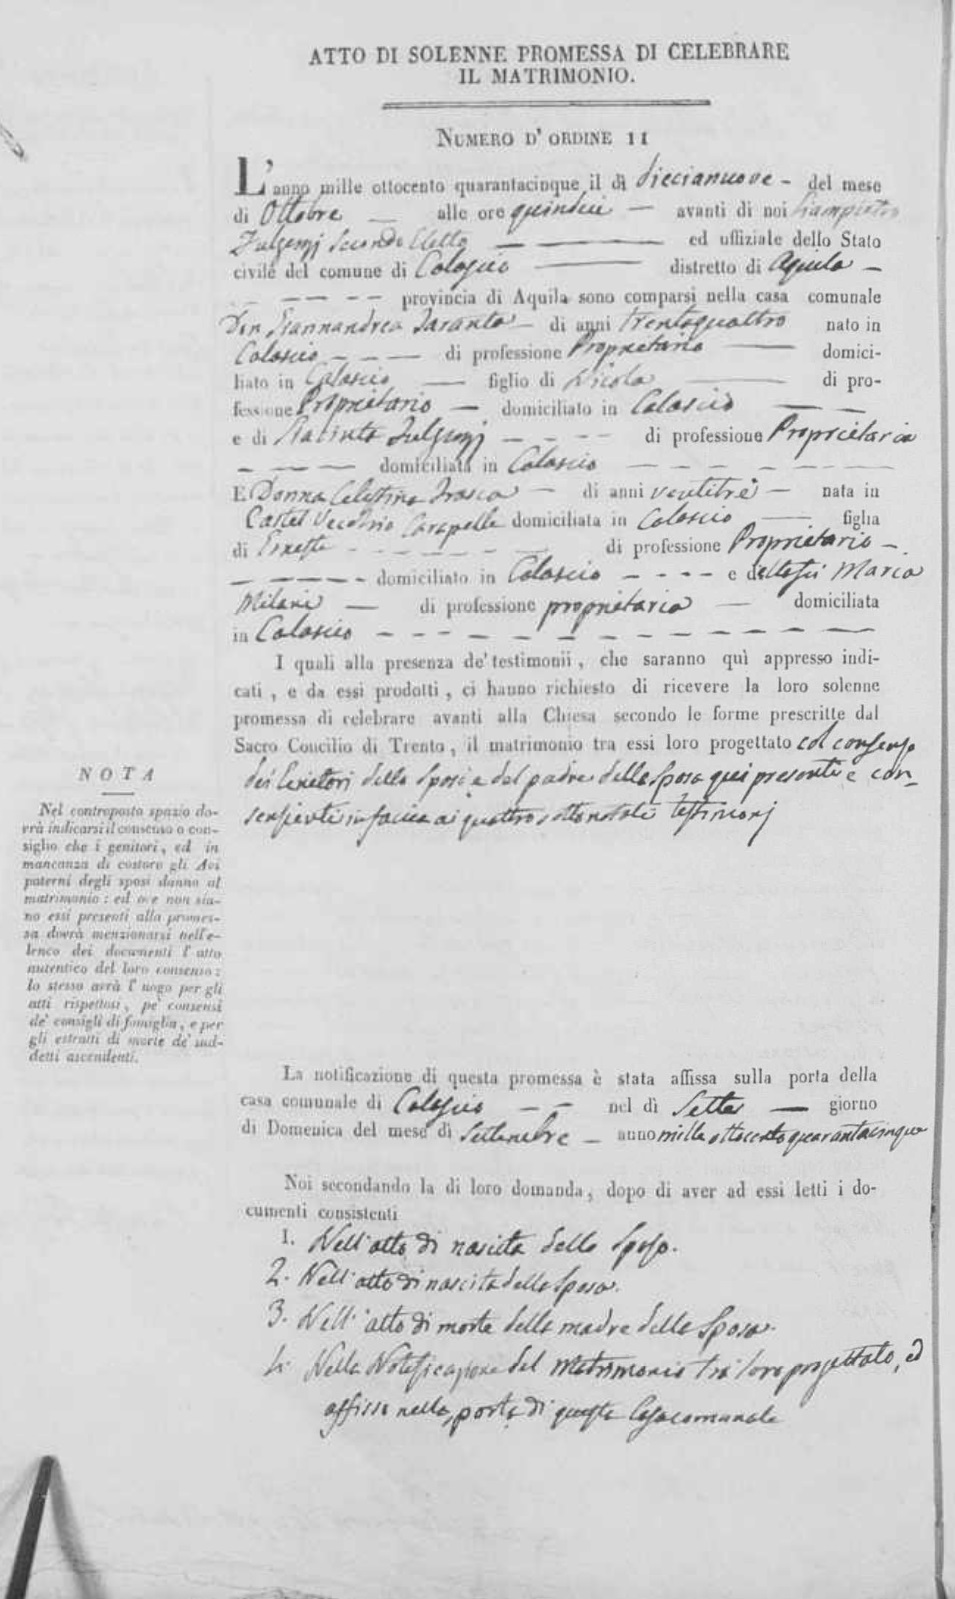 ATTO DI SOLENNE PROMESSA DI CELEBRARE
IL MATRIMONIO.
NUMERO D' ORDINE 11
L'anno mille ottocento quarantacinque il dì diecianuove - del mese
di Ottobre — alle ore quindici — avanti di noi Giampietro
Fulgenzj Secondo Eletto — ed uffiziale dello Stato
civile del comune di Calascio — distretto di Aquila —
— — — — provincia di Aquila sono comparsi nella casa comunale
Don Giannandrea Taranta — di anni trentaquattro nato in
Calascio - - - — di professione Proprietario — domici-
liato in Calascio — figlio di Nicola — di pro-
fessione Proprietario — domiciliato in Calascio — —
e di Giacinta Fulgenzj - - - - di professione Proprietaria
- — — — domiciliata in Calascio — — — — — — —
E Donna Celestina Frasca — di anni ventitrè — nata in
Castel Vecchio Carapelle domiciliata in Calascio — figlia
di Ernesto - - - - - - - di professione Proprietario —
— — — — — - domiciliato in Calascio - - - - e della fu Maria
Milani — di professione proprietaria — domiciliata
in Calascio - - - - - - - - - - -
I quali alla presenza de' testimonii, che saranno quì appresso indi-
cati, e da essi prodotti, ci hanno richiesto di ricevere la loro solenne
promessa di celebrare avanti alla Chiesa secondo le forme prescritte dal
Sacro Concilio di Trento, il matrimonio tra essi loro progettato col consenso
dei Genitori dello Sposo e del padre della Sposa qui presenti e con-
senzienti in faccia ai quattro sottonotati testimonj
NOTA
Nel controposto spazio do-
vrà indicarsi il consenso o con-
siglio che i genitori, ed in
mancanza di costoro gli Avi
paterni degli sposi danno al
matrimonio: ed ove non sia-
no essi presenti alla promes-
sa dovrà menzionarsi nell'e-
lenco dei documenti l' atto
autentico del loro consenso:
lo stesso avrà l' uogo per gli
atti rispettosi, pe' consensi
de' consigli di famiglia, e per
gli estratti di morte de' sud-
detti ascendenti.
La notificazione di questa promessa è stata affissa sulla porta della
casa comunale di Calascio — — nel dì Sette — giorno
di Domenica del mese di Settembre — anno mille ottocento quarantacinque
Noi secondando la di loro domanda, dopo di aver ad essi letti i do-
cumenti consistenti
1. Nell'atto di nascita dello Sposo.
2. Nell'atto di nascita della Sposa.
3. Nell'atto di morte della madre della Sposa.
4. Nella Notificazione del Matrimonio tra loro progettato, ed
affissa nella porta di questa Casa comunale